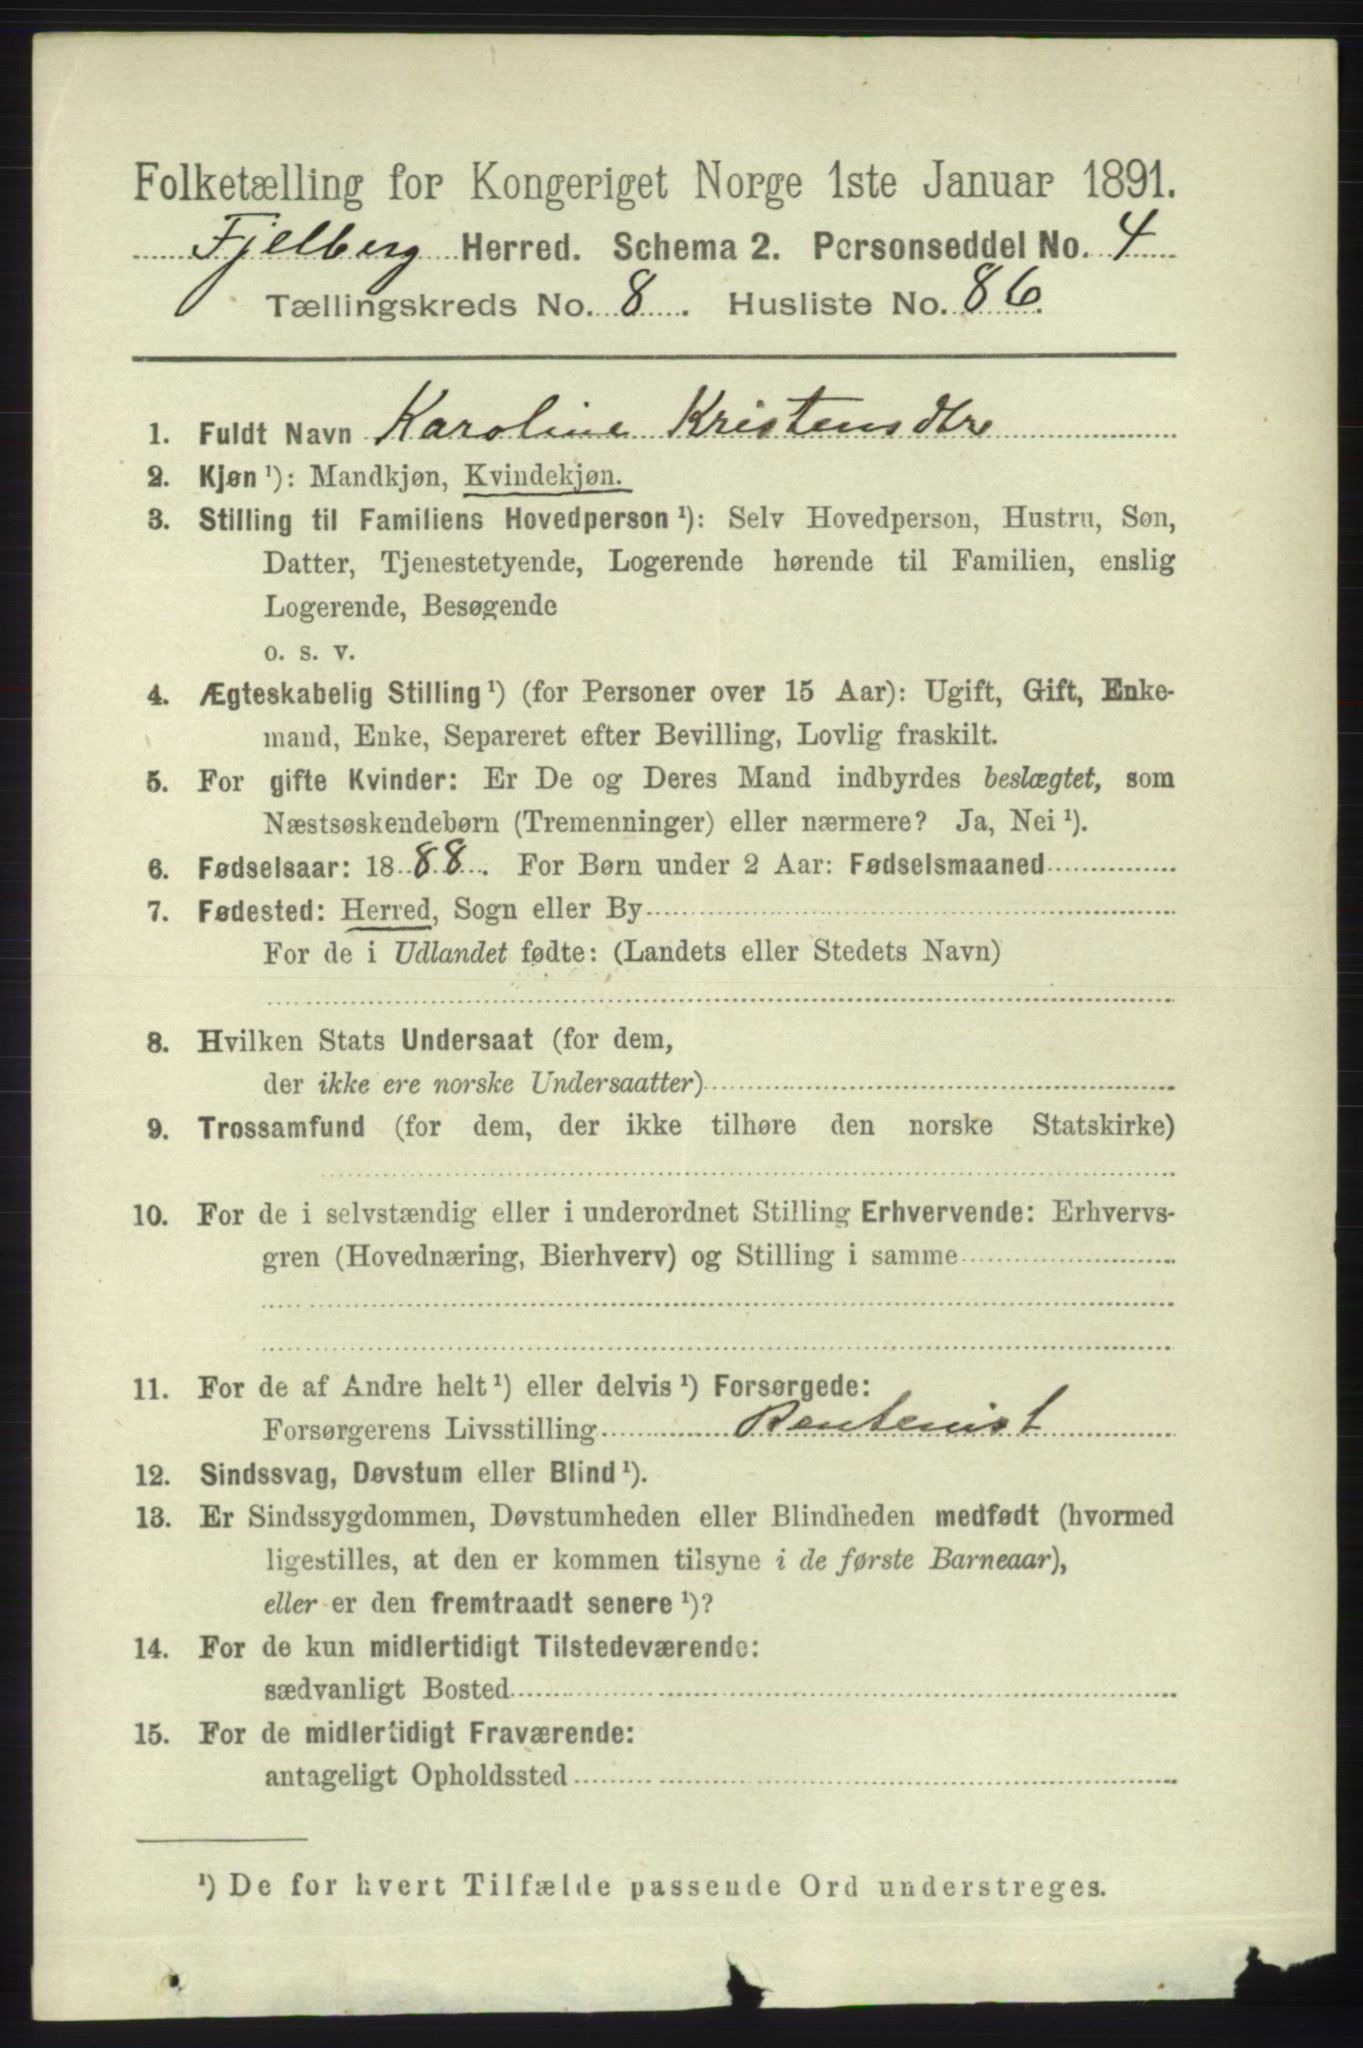 Folketælling for Kongeriget Norge 1ste Januar 1891.
Fjelberg Herred. Schema 2. Personseddel No. 4
Tællingskreds No. 8. Husliste No. 86.
1. Fuldt Navn Karoline Kristensdtr
2. Kjøn ¹): Mandkjøn, Kvindekjøn.
3. Stilling til Familiens Hovedperson ¹): Selv Hovedperson, Hustru, Søn,
Datter, Tjenestetyende, Logerende hørende til Familien, enslig
Logerende, Besøgende
o. s. v.
4. Ægteskabelig Stilling ¹) (for Personer over 15 Aar): Ugift, Gift, Enke-
mand, Enke, Separeret efter Bevilling, Lovlig fraskilt.
5. For gifte Kvinder: Er De og Deres Mand indbyrdes beslægtet, som
Næstsøskendebørn (Tremenninger) eller nærmere? Ja, Nei ¹).
6. Fødselsaar: 1888. For Børn under 2 Aar: Fødselsmaaned
7. Fødested: Herred, Sogn eller By
For de i Udlandet fødte: (Landets eller Stedets Navn)
8. Hvilken Stats Undersaat (for dem,
der ikke ere norske Undersaatter)
9. Trossamfund (for dem, der ikke tilhøre den norske Statskirke)
10. For de i selvstændig eller i underordnet Stilling Erhvervende: Erhvervs-
gren (Hovednæring, Bierhverv) og Stilling i samme
11. For de af Andre helt ¹) eller delvis ¹) Forsørgede:
Forsørgerens Livsstilling Rentenist
12. Sindssvag, Døvstum eller Blind ¹).
13. Er Sindssygdommen, Døvstumheden eller Blindheden medfødt (hvormed
ligestilles, at den er kommen tilsyne i de første Barneaar),
eller er den fremtraadt senere ¹)?
14. For de kun midlertidigt Tilstedeværende:
sædvanligt Bosted
15. For de midlertidigt Fraværende:
antageligt Opholdssted
¹) De for hvert Tilfælde passende Ord understreges.